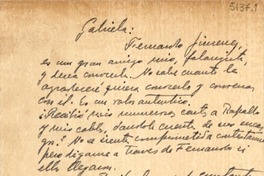 5137.1
Gabriela:
Fernando Jimenez
es un gran amigo mio, falangista,
y desea conocerla. No sabe cuanto la
agradeceré quiera conocerlo y conversar
con él. Es un valor autentico.
¿Recibió mis numerosas cartas a Rapallo
y mis cables, dandole cuenta de sus encar-
gos? No se sienta comprometida a contestarme
pero digame a traves de Fernando si
ellas llegaron.